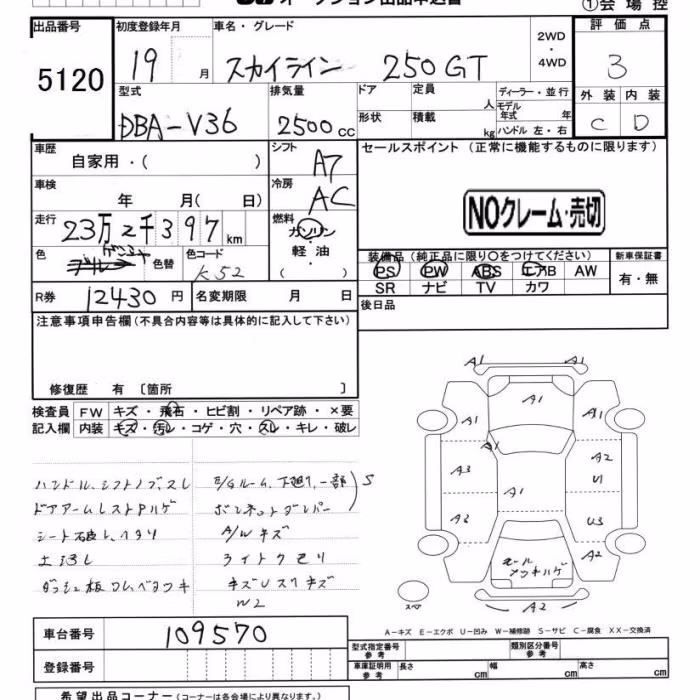 オークション出品申込書
①会場控
出品番号 初度登録年月 車名・グレード 2WD・4WD 評価点
5120 19 月 スカイライン 250GT 3
型式 排気量 ドア 定員 人 ディーラー・並行 外装 内装
DBA-V36 2500cc 形状 積載 kg モデル年式 年 ハンドル 左・右 C D
車歴 シフト セールスポイント(正常に機能するものに限ります)
自家用・( ) A7
車検 冷房
年 月( 日) AC
NOクレーム・売切
走行 燃料
23万2千397km ガソリン
軽油
( )
色 色替 色コード
K52
装備品(純正品に限り○をつけてください) 新車保証書
PS PW ABS エアB AW 有・無
SR ナビ TV カワ
R券 12430円 名変期限 月 日 後日品
注意事項申告欄(不具合内容等は具体的に記入して下さい)
修復歴 有〔箇所 〕
検査員 FW キズ・飛石・ヒビ割・リペア跡・×要
記入欄 内装 キズ・汚レ・コゲ・穴・スレ・キレ・破レ
ハンドル、シフトノブ、スレ
ドアアームレストPハゲ
シート破レ、ヘタリ
E/Gルーム、下廻り、一部 S
ボンネットダンパー
A/Wキズ
ライトクモリ
W2
A1
A1
A1
A1
A1
A3
A1
A2
U1
A3
U3
A2
モールメッキハゲ
A2
A1
スペ
A-キズ E-エクボ U-凹み W-補修跡 S-サビ C-腐食 XX-交換済
車台番号 109570
登録番号
型式指定番号参考 類別区分番号参考
車庫証明用参考 長さ cm 幅 cm 高さ cm
希望出品コーナー(コーナーは各会場により異なります。)